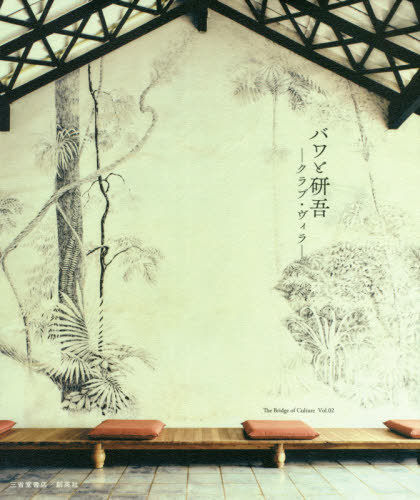 バワと研吾
―クラブ・ヴィラ―
The Bridge of Culture Vol.02
三省堂書店／創英社